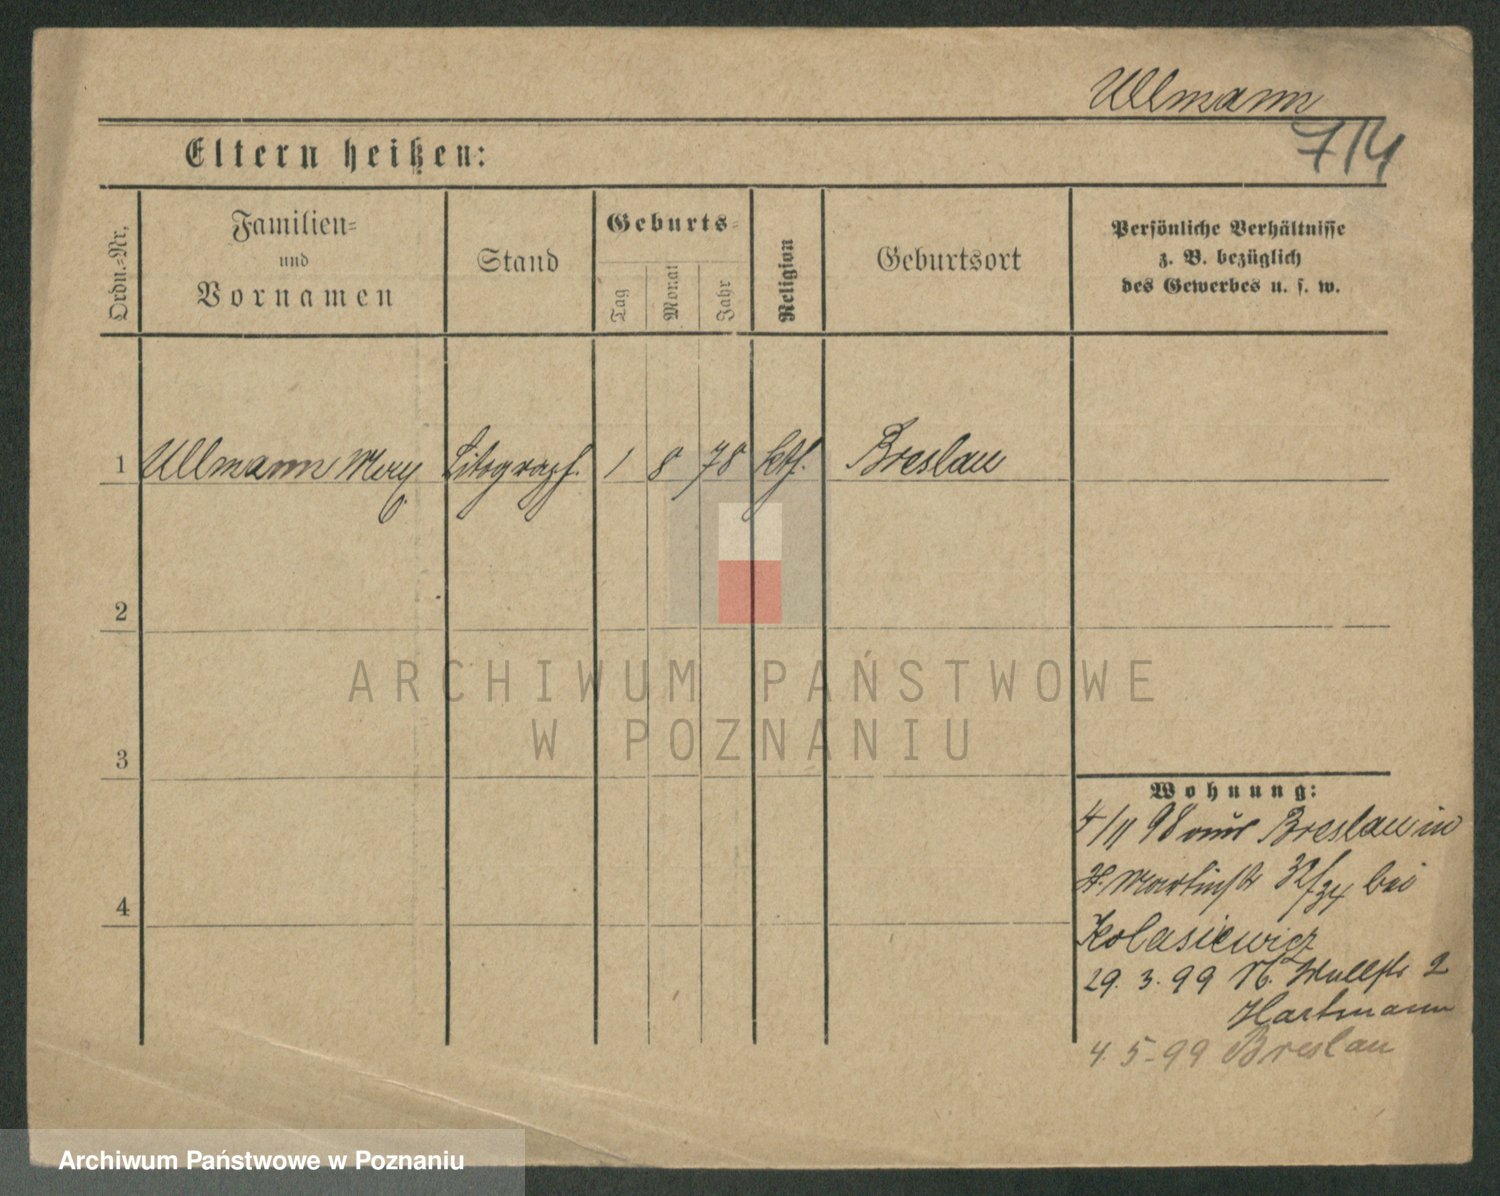 Ullmann
714
Eltern heißen:
Ordn.-Nr.
Familien-
und
Vornamen
Stand
Geburts-
Tag
Monat
Jahr
Religion
Geburtsort
Persönliche Verhältnisse
z. B. bezüglich
des Gewerbes u. s. w.
1 Ullmann Max Litograph. 1 8 78 kth. Breslau
2
3
4
Wohnung:
4/11 98 aus Breslau in
St. Martinstr 32/34 bei
Kolasiewicz
29. 3. 99 N. Wallstr 2
Hartmann
4. 5-99 Breslau
ARCHIWUM PAŃSTWOWE
W POZNANIU
Archiwum Państwowe w Poznaniu